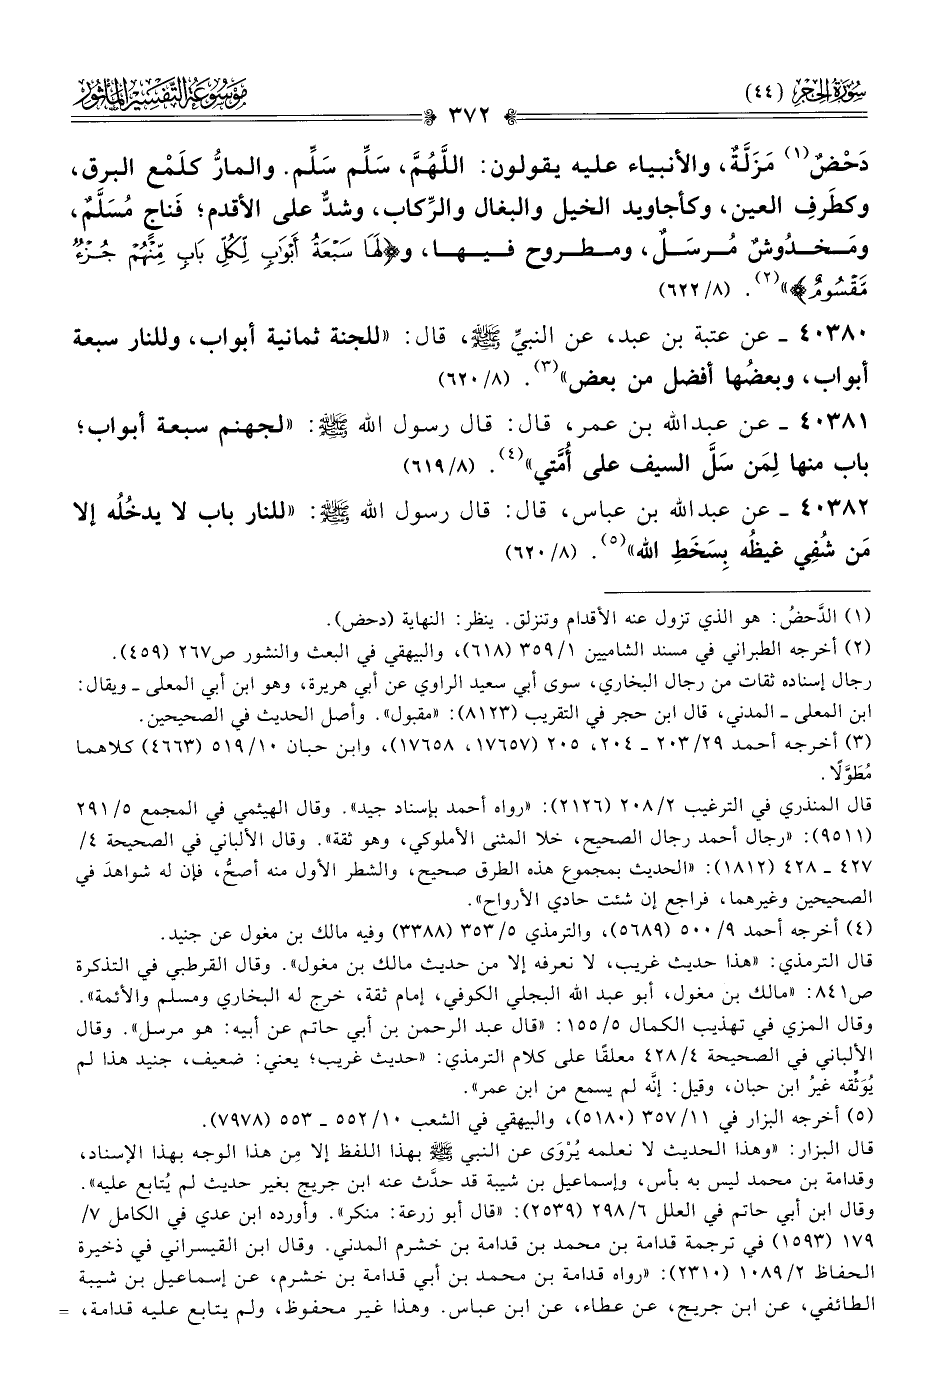 سورة الحجر (٤٤)
موسوعة التفسير المأثور
٣٧٢
دَحْضٌ(١) مَزَلَّةٌ، والأنبياء عليه يقولون: اللَّهُمَّ، سَلِّم سَلِّم. والمارُّ كلَمْع البرق،
وكطَرفِ العين، وكأجاويد الخيل والبغال والرِّكاب، وشدٌّ على الأقدم؛ فَناجٍ مُسَلَّمٌ،
ومَخدُوشٌ مُرسَلٌ، ومطروح فيها، و﴿لَهَا سَبْعَةُ أَبْوَابٍ لِكُلِّ بَابٍ مِّنْهُمْ جُزْءٌ
مَقْسُومٌ﴾»(٢). (٦٢٢/٨)
٤٠٣٨٠ ـ عن عتبة بن عبد، عن النبيِّ ﷺ، قال: «للجنة ثمانية أبواب، وللنار سبعة
أبواب، وبعضُها أفضل من بعض»(٣). (٦٢٠/٨)
٤٠٣٨١ ـ عن عبدالله بن عمر، قال: قال رسول الله ﷺ: «لجهنم سبعة أبواب؛
باب منها لِمَن سَلَّ السيف على أُمَّتي»(٤). (٦١٩/٨)
٤٠٣٨٢ ـ عن عبدالله بن عباس، قال: قال رسول الله ﷺ: «للنار باب لا يدخُلُه إلا
مَن شُفِي غيظُه بِسَخَطِ الله»(٥). (٦٢٠/٨)
(١) الدَّحضُ: هو الذي تزول عنه الأقدام وتنزلق. ينظر: النهاية (دحض).
(٢) أخرجه الطبراني في مسند الشاميين ٣٥٩/١ (٦١٨)، والبيهقي في البعث والنشور ص٢٦٧ (٤٥٩).
رجال إسناده ثقات من رجال البخاري، سوى أبي سعيد الراوي عن أبي هريرة، وهو ابن أبي المعلى ـ ويقال:
ابن المعلى ـ المدني، قال ابن حجر في التقريب (٨١٢٣): «مقبول». وأصل الحديث في الصحيحين.
(٣) أخرجه أحمد ٢٠٣/٢٩ ـ ٢٠٤، ٢٠٥ (١٧٦٥٧، ١٧٦٥٨)، وابن حبان ٥١٩/١٠ (٤٦٦٣) كلاهما
مُطَوَّلًا.
قال المنذري في الترغيب ٢٠٨/٢ (٢١٢٦): «رواه أحمد بإسناد جيد». وقال الهيثمي في المجمع ٢٩١/٥
(٩٥١١): «رجال أحمد رجال الصحيح، خلا المثنى الأملوكي، وهو ثقة». وقال الألباني في الصحيحة ٤/
٤٢٧ ـ ٤٢٨ (١٨١٢): «الحديث بمجموع هذه الطرق صحيح، والشطر الأول منه أصحُّ، فإن له شواهدَ في
الصحيحين وغيرهما، فراجع إن شئت حادي الأرواح».
(٤) أخرجه أحمد ٥٠٠/٩ (٥٦٨٩)، والترمذي ٣٥٣/٥ (٣٣٨٨) وفيه مالك بن مغول عن جنيد.
قال الترمذي: «هذا حديث غريب، لا نعرفه إلا من حديث مالك بن مغول». وقال القرطبي في التذكرة
ص٨٤١: «مالك بن مغول، أبو عبد الله البجلي الكوفي، إمام ثقة، خرج له البخاري ومسلم والأئمة».
وقال المزي في تهذيب الكمال ١٥٥/٥: «قال عبد الرحمن بن أبي حاتم عن أبيه: هو مرسل». وقال
الألباني في الصحيحة ٤٢٨/٤ معلقًا على كلام الترمذي: «حديث غريب؛ يعني: ضعيف، جنيد هذا لم
يُوَثِّقه غيرُ ابن حبان، وقيل: إنَّه لم يسمع من ابن عمر».
(٥) أخرجه البزار في ٣٥٧/١١ (٥١٨٠)، والبيهقي في الشعب ٥٥٢/١٠ ـ ٥٥٣ (٧٩٧٨).
قال البزار: «وهذا الحديث لا نعلمه يُرْوَى عن النبي ﷺ بهذا اللفظ إلا مِن هذا الوجه بهذا الإسناد،
وقدامة بن محمد ليس به بأس، وإسماعيل بن شيبة قد حدَّث عنه ابن جريج بغير حديث لم يُتابع عليه».
وقال ابن أبي حاتم في العلل ٢٩٨/٦ (٢٥٣٩): «قال أبو زرعة: منكر». وأورده ابن عدي في الكامل ٧/
١٧٩ (١٥٩٣) في ترجمة قدامة بن محمد بن قدامة بن خشرم المدني. وقال ابن القيسراني في ذخيرة
الحفاظ ١٠٨٩/٢ (٢٣١٠): «رواه قدامة بن محمد بن أبي قدامة بن خشرم، عن إسماعيل بن شيبة
الطائفي، عن ابن جريج، عن عطاء، عن ابن عباس. وهذا غير محفوظ، ولم يتابع عليه قدامة، =